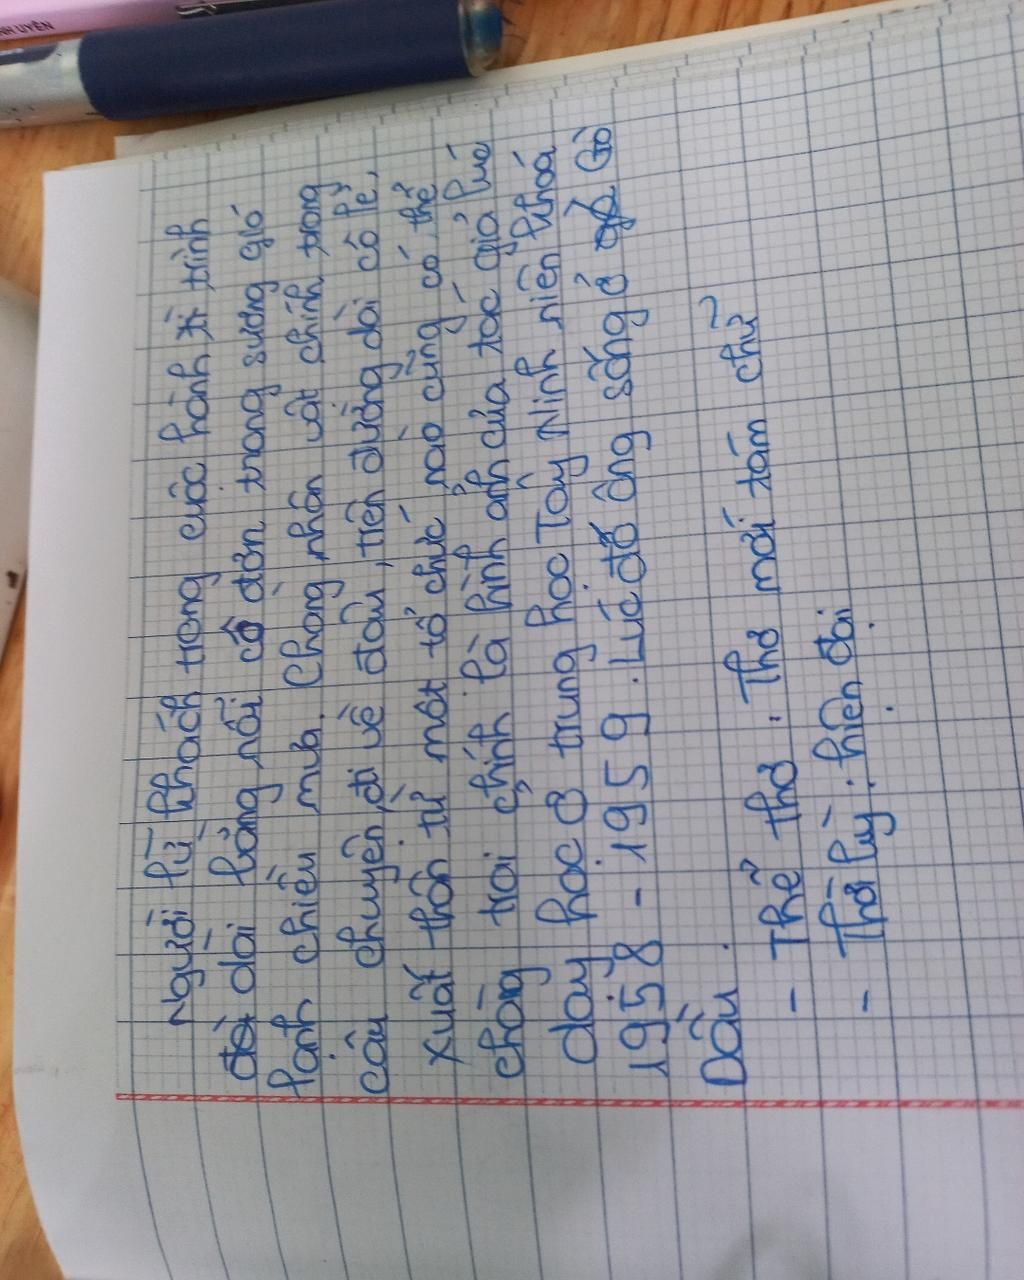 NH UYÊN
Người lữ khách trong cuộc hành xi trình
dài dài hỏng nổi cô đơn trong sương gió
lạnh chiều mưa. Chàng nhân vật chính trong
câu chuyện, đi về đâu, trên đường dài có lẽ,
xuất thân từ một tổ chức nào cũng có thể
chàng trai chính là hình ảnh của tác giả, lúc
dạy học ở trung học Tây Ninh niên khoá
1958 - 1959. Lúc đó ông sống ở Gò
Dầu.
- Thể thơ : Thơ mới tám chữ
- Thời lỳ : hiện đại.